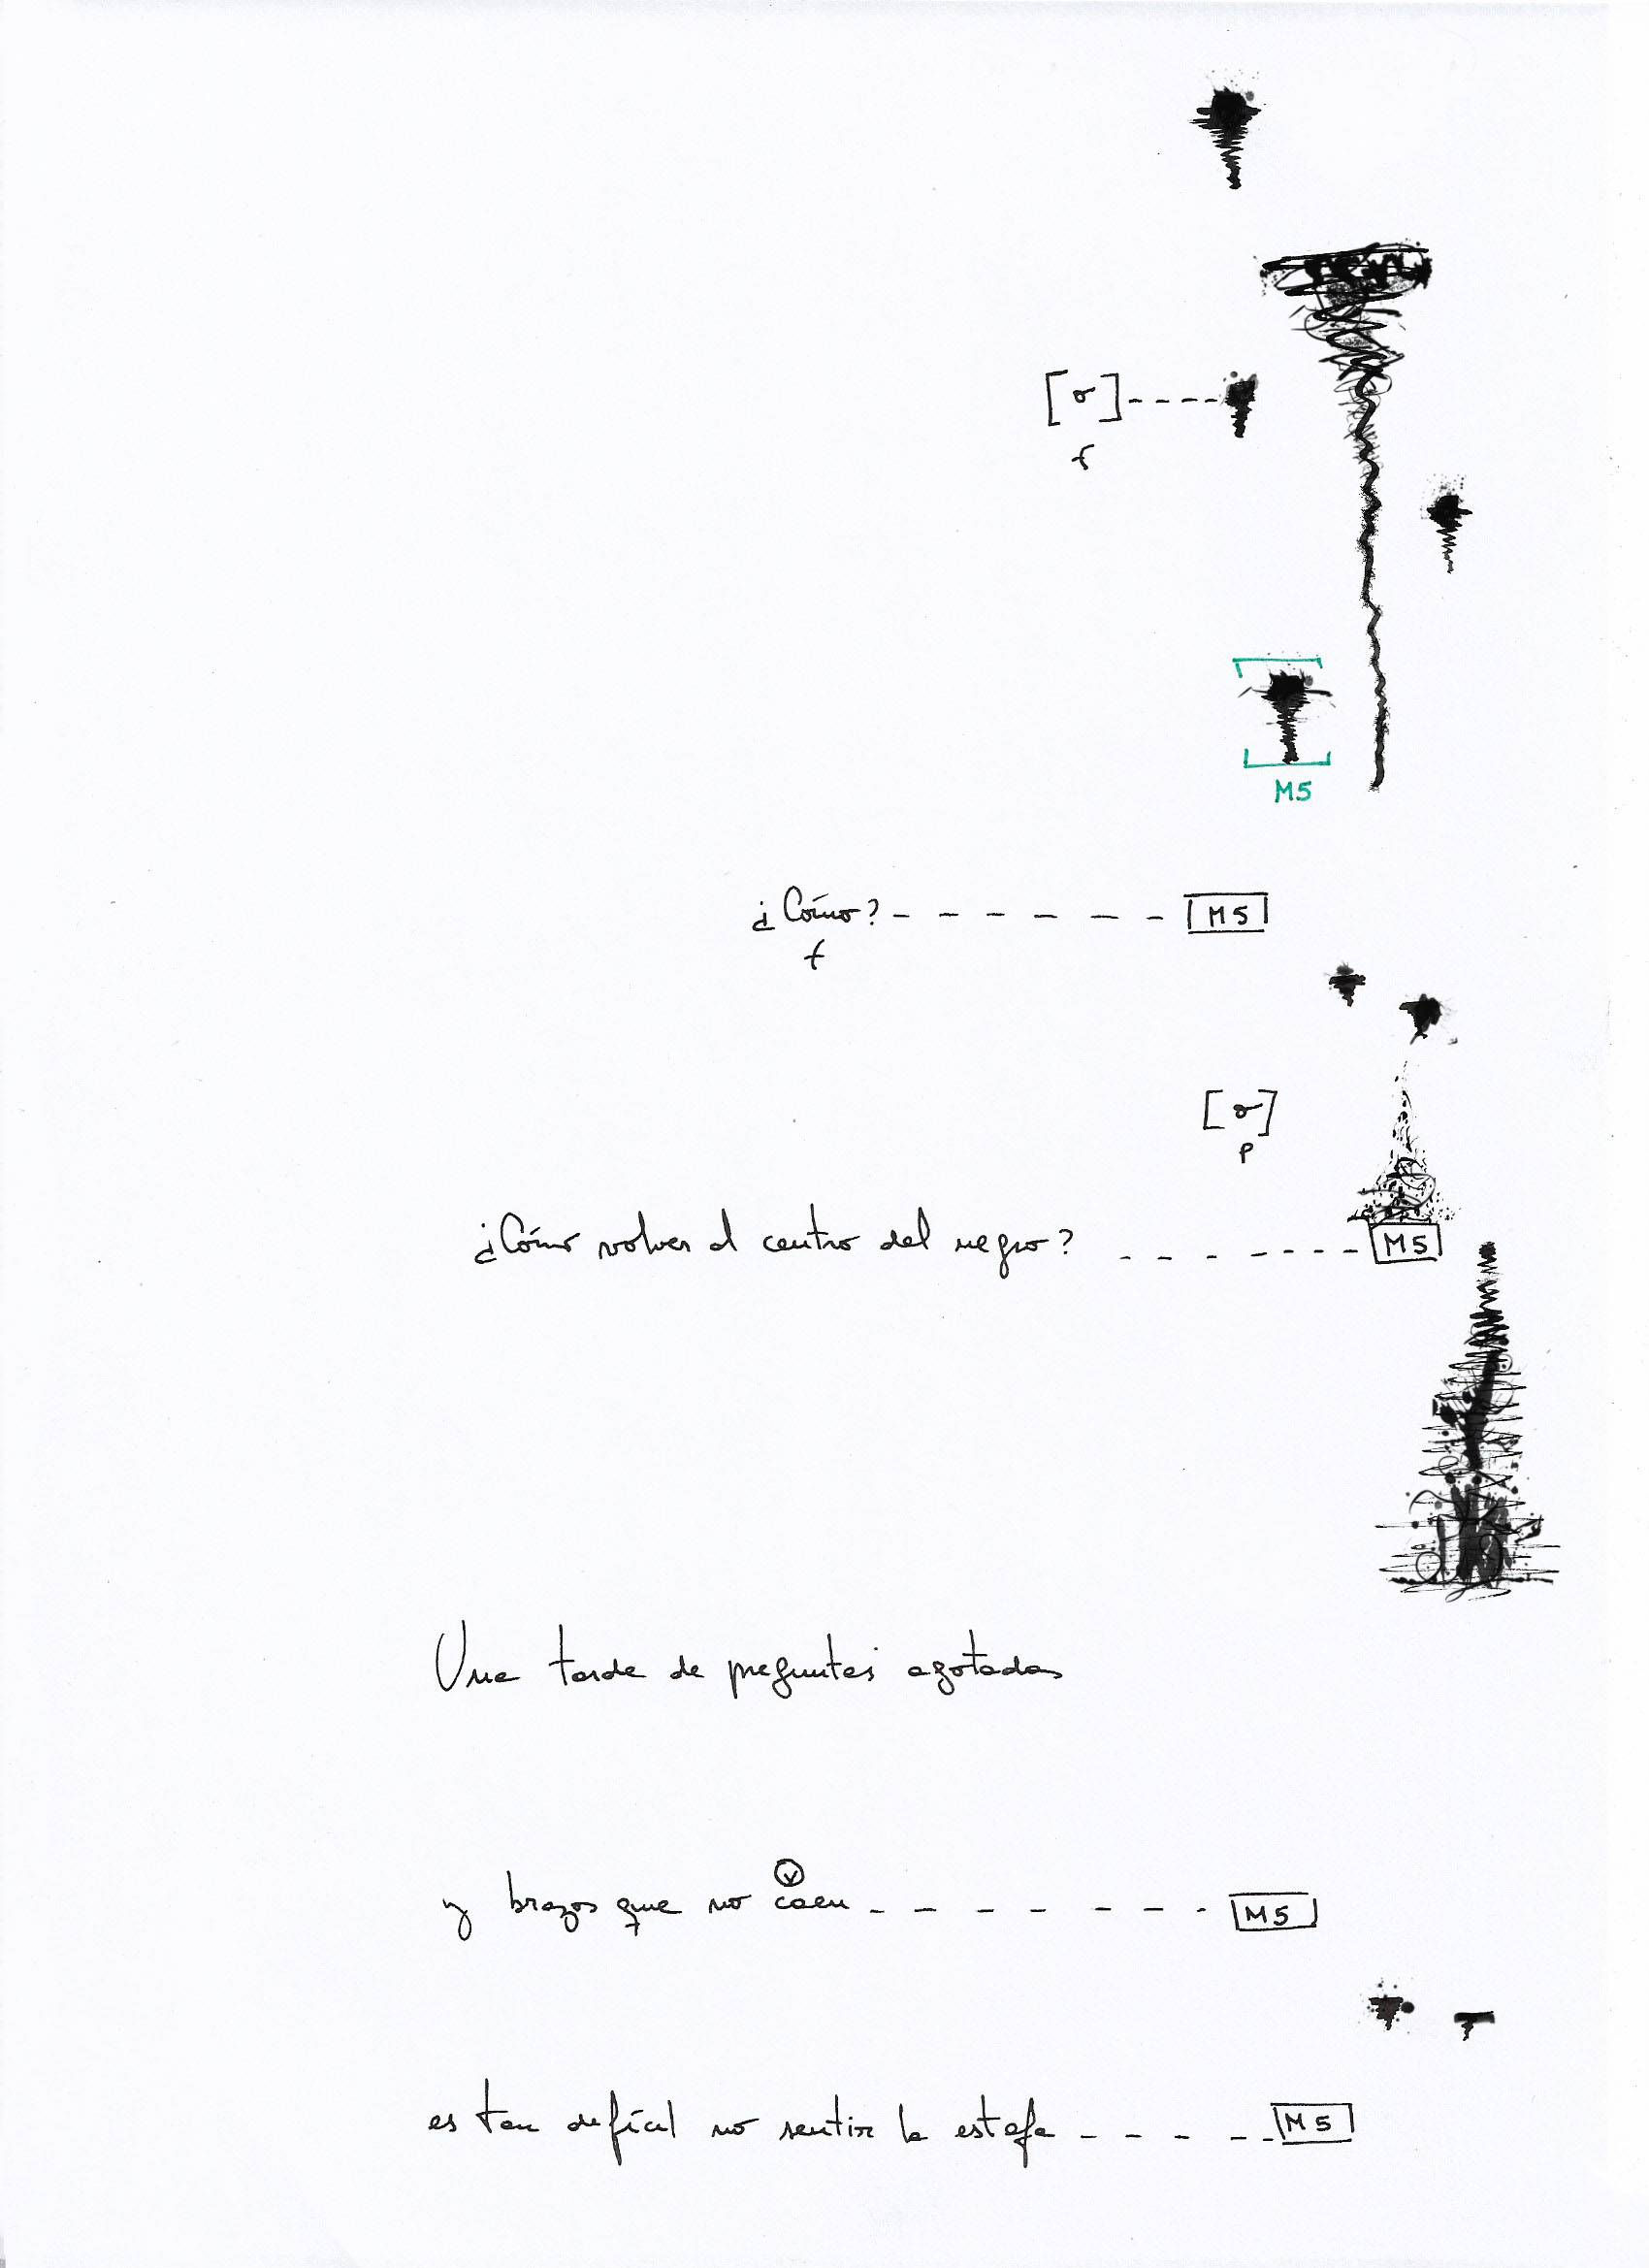 [o]----
f
M5
¿Cómo?- - - - - - M5
f
[o]
p
¿Cómo volver al centro del negro? - - - - - - - - M5
Una tarde de preguntas agotadas
v
y brazos que no caen - - - - - - - M5
es tan difícil no sentir la estafa - - - - - M5